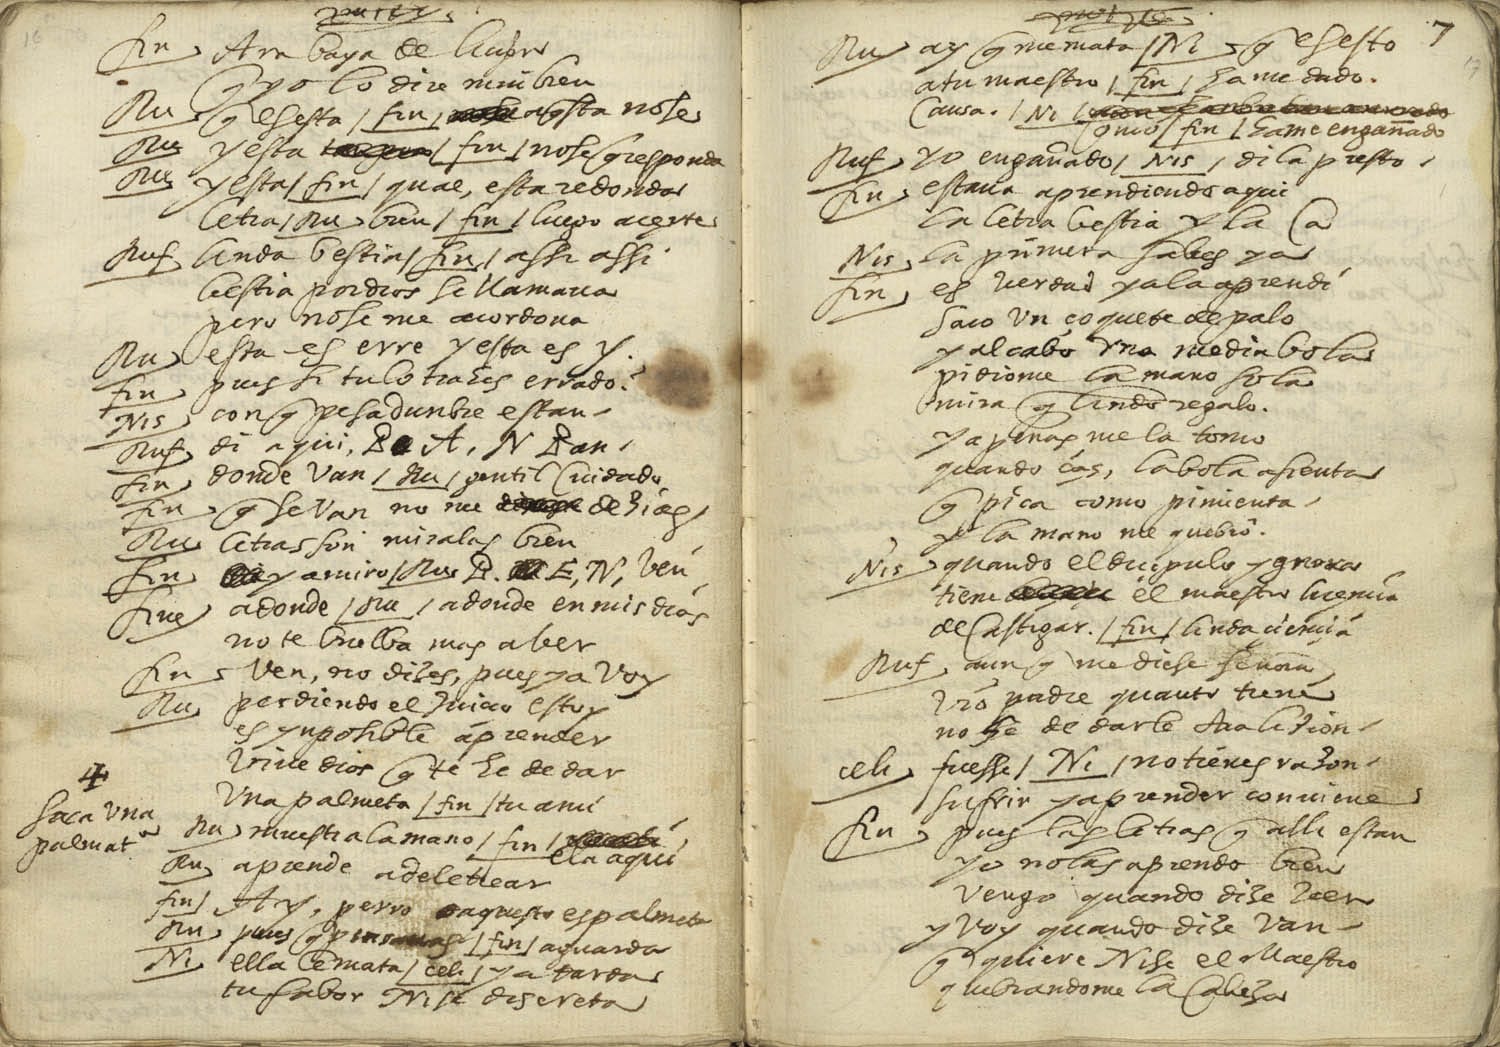 fin Ara vaya de
q yo lo dire mui bien
Ru q es esta / fin / aqsta no se
Ru y esta / fin / no se q responda
Ru y esta / fin / qual, esta redonda
letra / Ru bien / fin / luego acerte
Ruf linda bestia / fin / assi assi
bestia por dios se llamaua
pero no se me acordaua
Ru esta es erre y esta es y.
fin pues si tu lo trahes errado.
Nis con q pesadunbre estan
Ruf di aqui, B A, N Ban
fin donde van / Ru / gentil cuidado
fin q se van no me dezias
Ru letras son miralas bien
fin ya miro / Ru B. E, N, ven
fine adonde / Ru / adonde en mis dias
no te buelba mas a ber
fin ven, no dizes, pues ya voy
Ru perdiendo el juicio estoy
es ynposible aprender
vive dios q te he de dar
4
saca una palmat
una palmeta / fin / tu a mi
Ru muestra la mano / fin / ela aqui
Ru aprende a deletrear
fin Ay, perro aquesto es palmeta
Ru pues q pensauas / fin / aguarda
Ni ella le mata / celi / ya tarda
tu fabor Nise discreta
7
17
Ru ay q me mata / Ni q es esto
a tu maestro / fin / hame dado.
causa. / Ni / como / fin / hame engañado
Ruf yo engañado / Nis / dila presto
fin estaua aprendiendo aqui
la letra bestia y la ca
Nis la primera sabes ya
fin es verdad ya la aprendi
saco un çoquete de palo
y al cabo una media bola
pidiome la mano sola
mira q lindo regalo.
y apenas me la tomo
quando ças, la bola asienta
q pica como pimienta
y la mano me quebro.
Nis quando el dicipulo ygnora
tiene el maestro licencia
de castigar. / fin / linda ciencia
Ruf aun q me diese señora
vro padre quanto tiene
no he de darle otra licion
celi fuesse / Ni / no tienes razon
sufrir y aprender conviene
fin pues las letras q alli estan
yo no las aprendo bien
vengo quando dize ven
y voy quando dize van
q quiere Nise el Maestro
quebrandome la cabeza